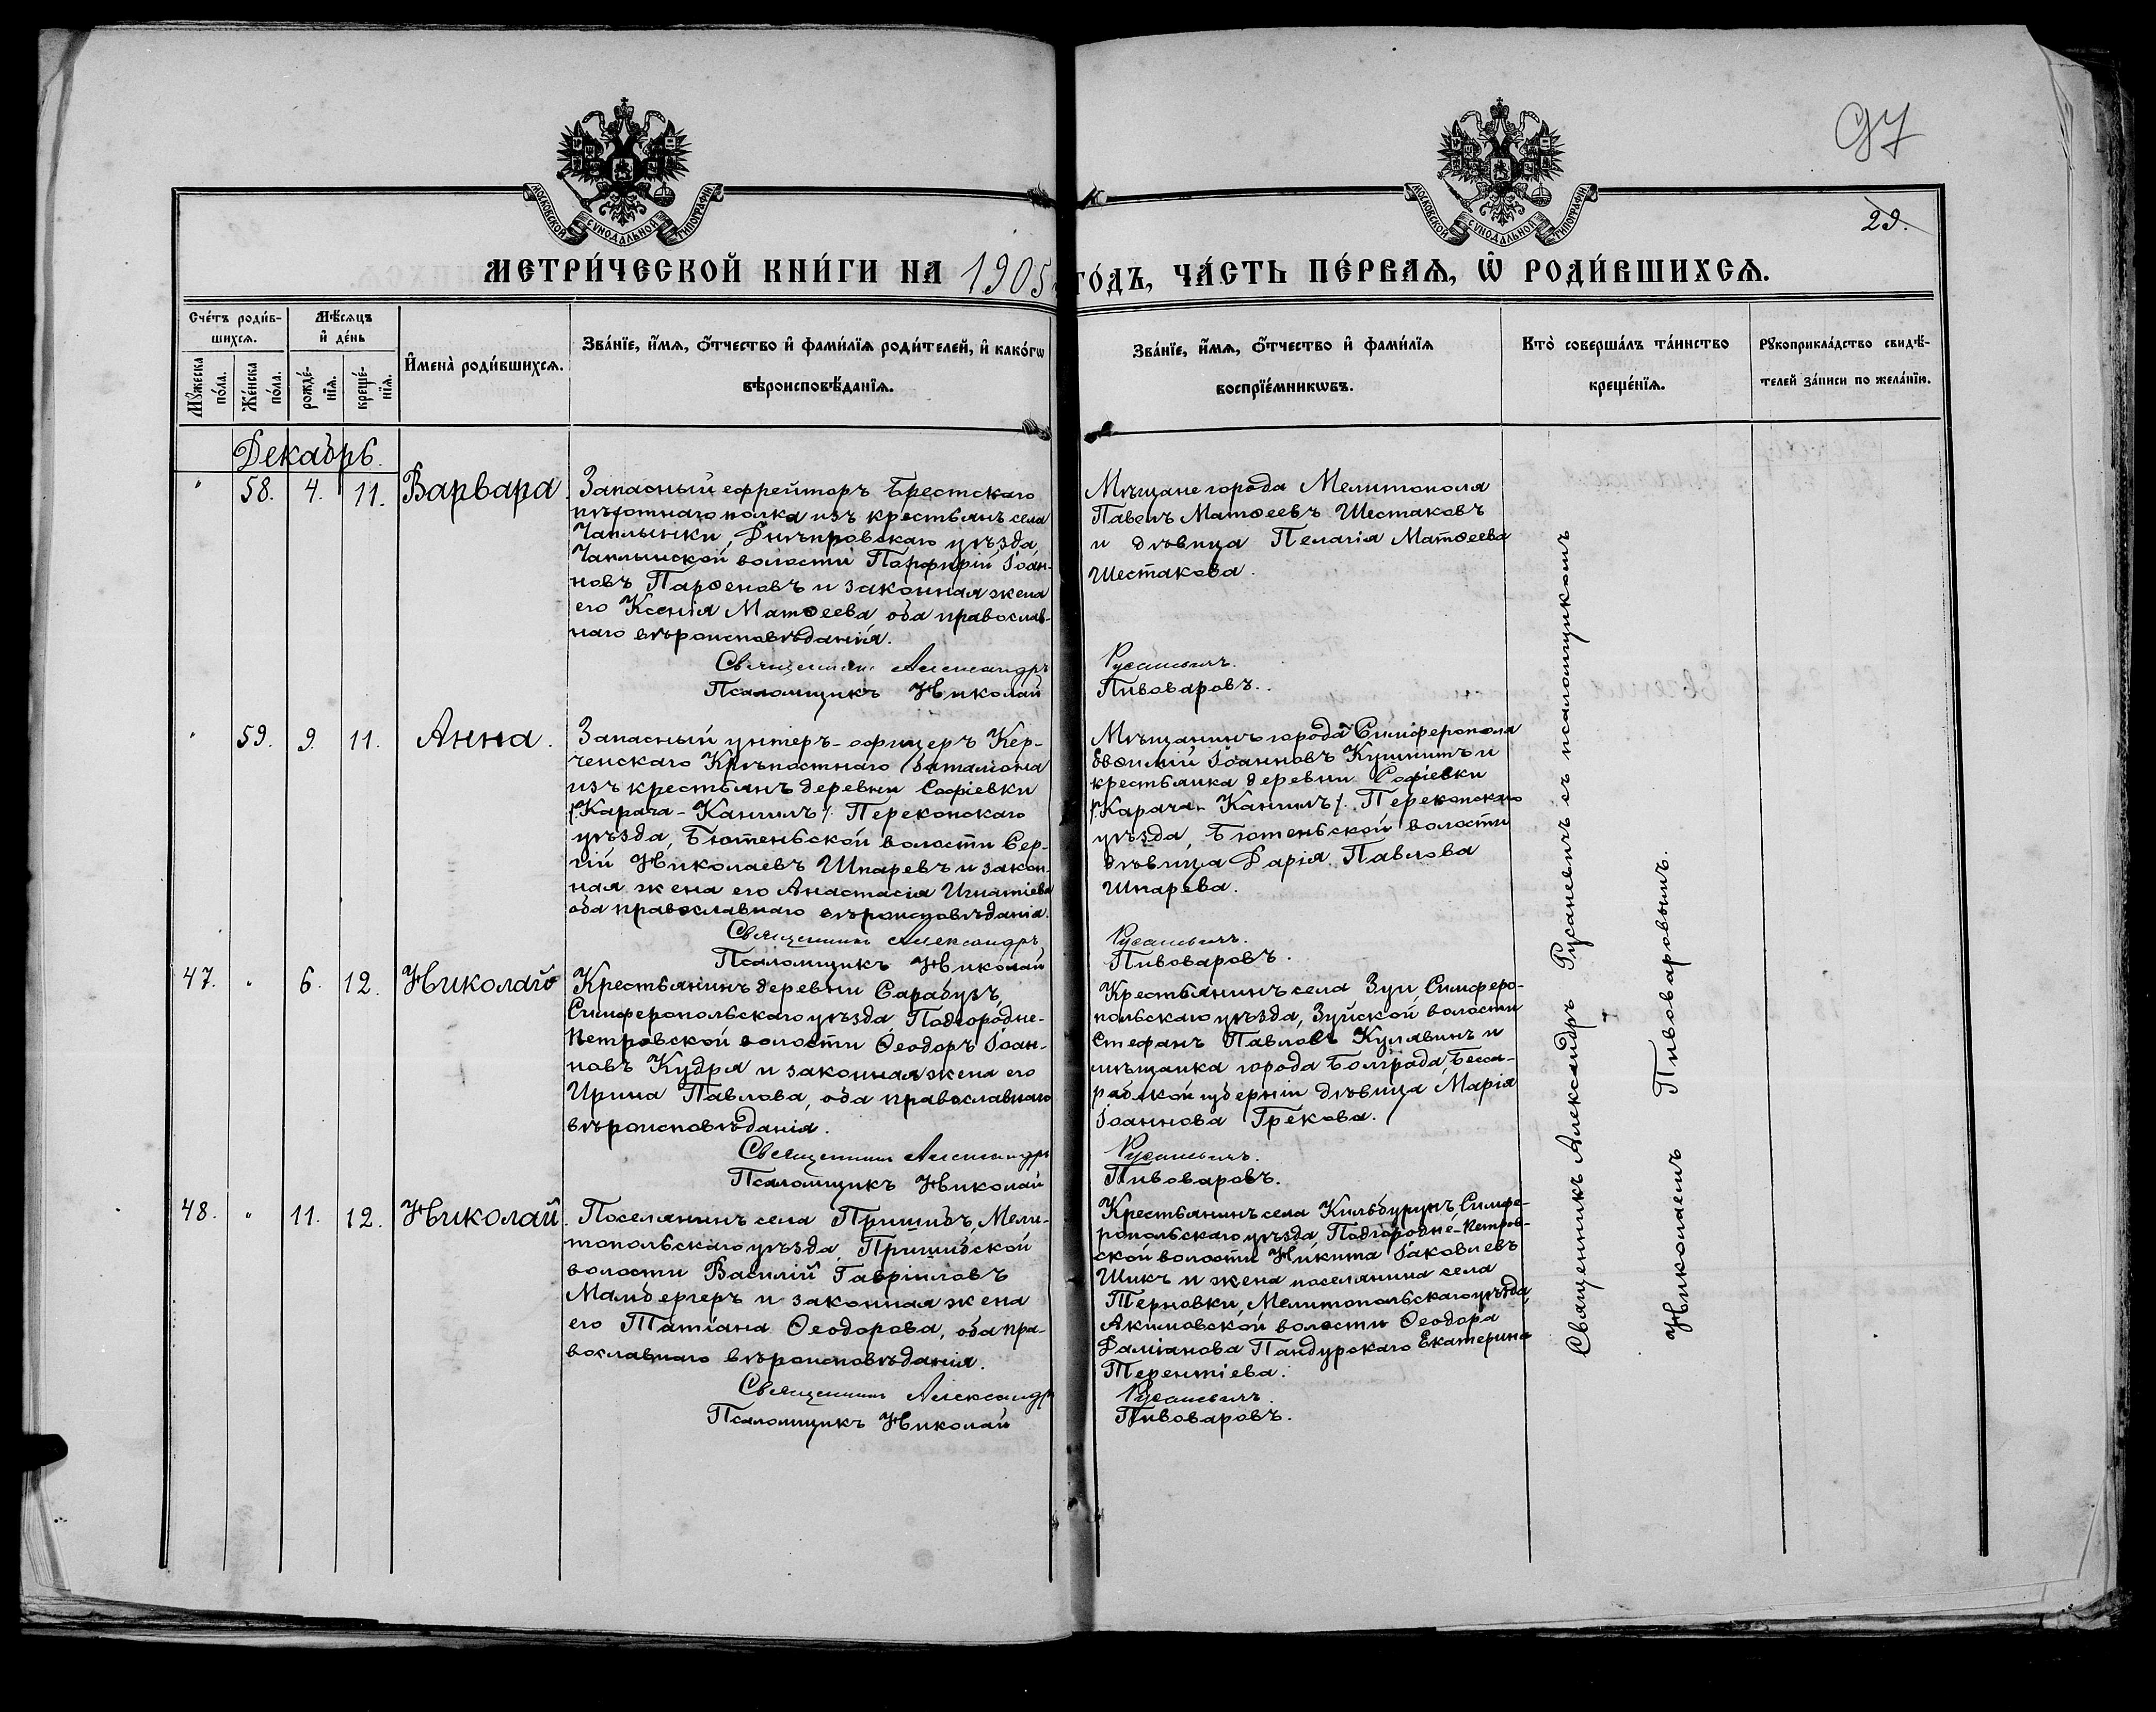 97
29.
МОСКОВСКОЙ СѴНОДАЛЬНОЙ ТИПОГРАФІИ
МОСКОВСКОЙ СѴНОДАЛЬНОЙ ТИПОГРАФІИ
МЕТРИ́ЧЕСКОЙ КНИ́ГИ НА 1905 ГО́ДЪ, ЧА́СТЬ ПЕ́РВАѦ, Ѽ РОДИ́ВШИХСѦ.
Сче́тъ роди́в-
шихсѧ.
Мꙋжеска
по́ла.
Же́нска
по́ла.
Мѣ́сѧцъ
и҆ де́нь
рожде́-
нїѧ.
креще́-
нїѧ.
И҆мена̀ роди́вшихсѧ.
Зва́нїе, и҆́мѧ, ѻ҆́тчество и҆ фами́лїѧ роди́телей, и҆ како́гѡ
вѣроисповѣ́данїѧ.
Зва́нїе, и҆́мѧ, ѻ҆́тчество и҆ фами́лїѧ
воспрїе́мникѡвъ.
Кто̀ соверша́лъ та́инство
креще́нїѧ.
Рꙋкоприкла́дство свидѣ́-
телей за́писи по жела́нїю.
Декабрь.
" 58. 4. 11. Варвара.
Запасный ефрейторъ Брестскаго
пѣхотнаго полка изъ крестьянъ села
Чаплынки, Днѣпровскаго уѣзда,
Чаплынской волости Порфирій Іоан-
новъ Парѳеновъ и законная жена
его Ксенія Матѳеева, оба православ-
наго вѣроисповѣданія.
Священникъ Александръ
Псаломщикъ Николай
Мѣщане города Мелитополя
Павелъ Матѳеевъ Шестаковъ
и дѣвица Пелагія Матѳеева
Шестакова.
Русаневичъ.
Пивоваровъ.
" 59. 9. 11. Анна.
Запасный унтеръ-офицеръ Кер-
ченскаго Крѣпостнаго баталіона
изъ крестьянъ деревни Софіевки
/Карача-Кангилъ/. Перекопскаго
уѣзда, Бютеньской волости Сер-
гій Николаевъ Шпаревъ и закон-
ная жена его Анастасія Игнатіева
оба православнаго вѣроисповѣданія.
Священникъ Александръ
Псаломщикъ Николай
Мѣщанинъ города Симферополя
Евѳимій Іоанновъ и
крестьянка деревни Софіевки
/Карача-Кангилъ/. Перекопскаго
уѣзда, Бютеньской волости
дѣвица Дарія Павлова
Шпарева.
Русаневичъ.
Пивоваровъ.
47. " 6. 12. Николай
Крестьянинъ деревни Сарабузъ,
Симферопольскаго уѣзда, Подгородне-
Петровской волости Ѳеодоръ Іоан-
новъ Кудря и законная жена его
Ирина Павлова, оба православнаго
вѣроисповѣданія.
Священникъ Александръ
Псаломщикъ Николай
Крестьянинъ села Зуи, Симферо-
польскаго уѣзда, Зуйской волости
Стефанъ Павловъ Кулявинъ и
мѣщанка города Болграда, Бесса-
рабской губерніи дѣвица Марія
Іоаннова Грекова.
Русаневичъ.
Пивоваровъ.
48. " 11. 12. Николай.
Поселянинъ села Пришибъ, Мели-
топольскаго уѣзда, Пришибской
волости Василій Гавріиловъ
Мамбергеръ и законная жена
его Татіана Ѳеодорова, оба пра-
вославнаго вѣроисповѣданія.
Священникъ Александръ
Псаломщикъ Николай
Крестьянинъ села Кильбурунъ, Симфе-
ропольскаго уѣзда, Подгородне-Петров-
ской волости Никита Іаковлевъ
Шикъ и жена поселянина села
Терновки, Мелитопольскаго уѣзда,
Акимовской волости Ѳеодора
Даміанова Пандурскаго Екатерина
Терентіева.
Русаневичъ.
Пивоваровъ.
Священникъ Александръ Русаневичъ съ псаломщикомъ
Николаемъ Пивоваровымъ.